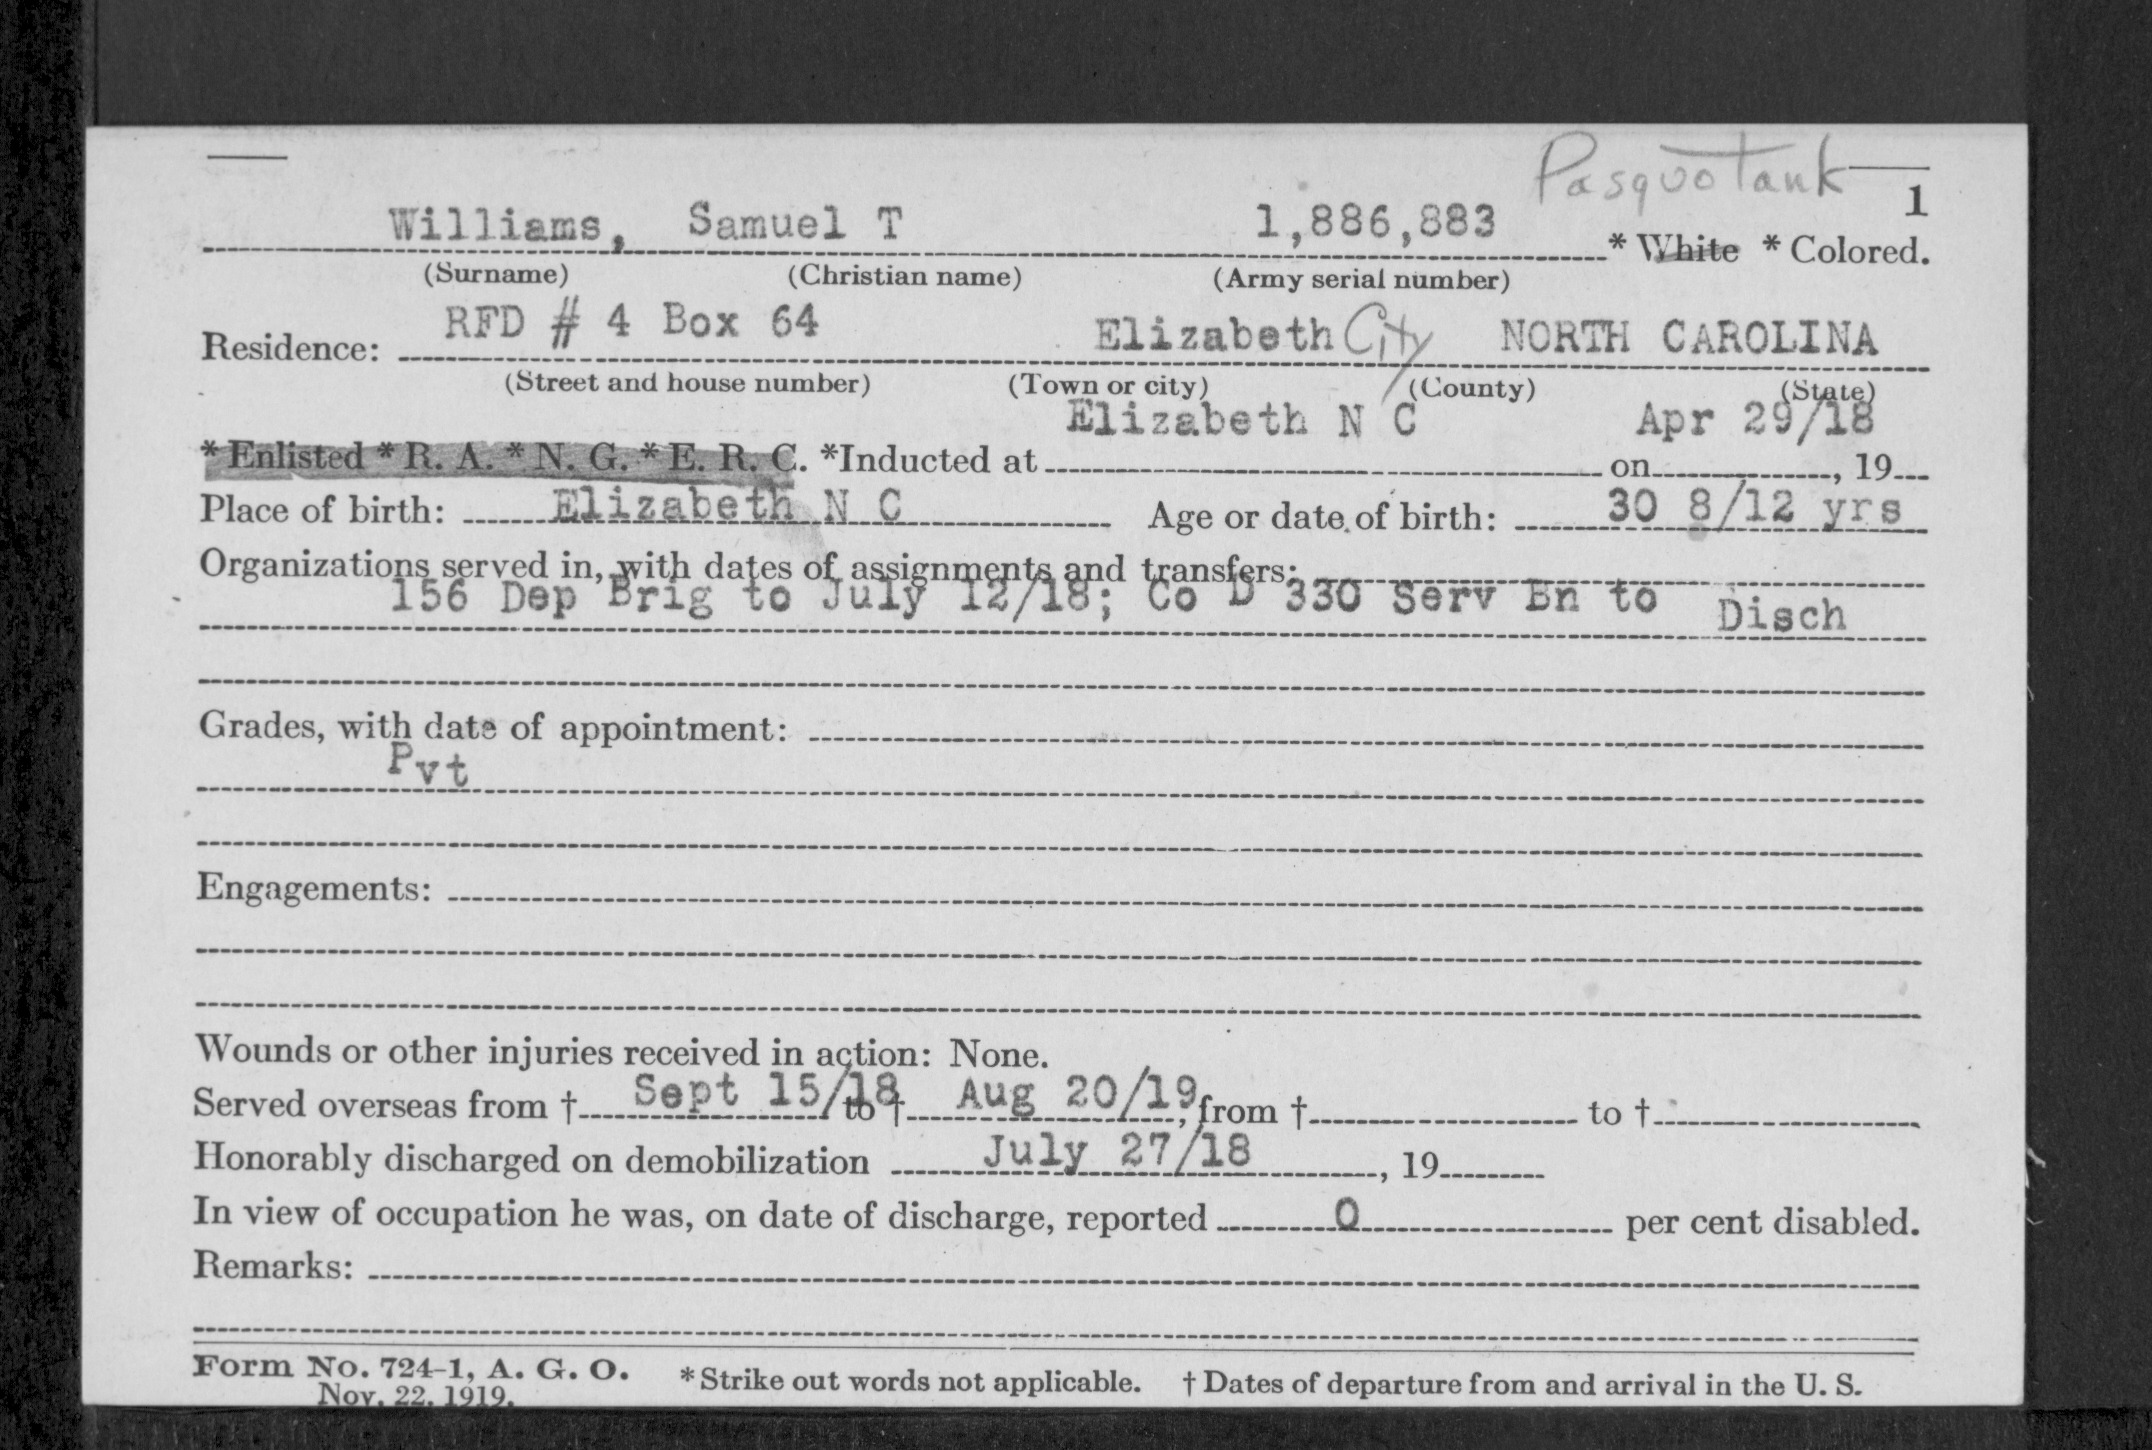 Pasquotank
1
Williams, Samuel T 1,886,883 * White * Colored.
(Surname) (Christian name) (Army serial number)
Residence: RFD # 4 Box 64 Elizabeth City NORTH CAROLINA
(Street and house number) (Town or city) (County) (State)
*Enlisted *R. A. *N. G. *E. R. C. *Inducted at Elizabeth N C on Apr 29/18, 19
Place of birth: Elizabeth N C Age or date of birth: 30 8/12 yrs
Organizations served in, with dates of assignments and transfers:
156 Dep Brig to July 12/18; Co D 330 Serv Bn to Disch
Grades, with date of appointment:
Pvt
Engagements:
Wounds or other injuries received in action: None.
Served overseas from † Sept 15/18 to † Aug 20/19, from † to †
Honorably discharged on demobilization July 27/18, 19
In view of occupation he was, on date of discharge, reported 0 per cent disabled.
Remarks:
Form No. 724-1, A. G. O. *Strike out words not applicable. † Dates of departure from and arrival in the U. S.
Nov. 22, 1919.